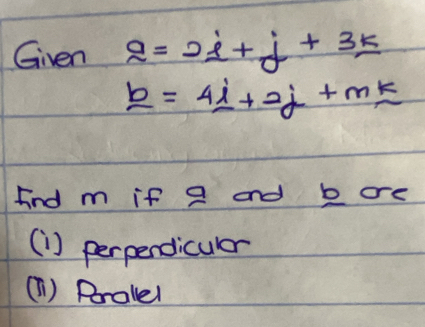 Given a = 2i + j + 3k
b = 4i + 2j + mk
find m if a and b are
(i) perpendicular
(ii) Parallel